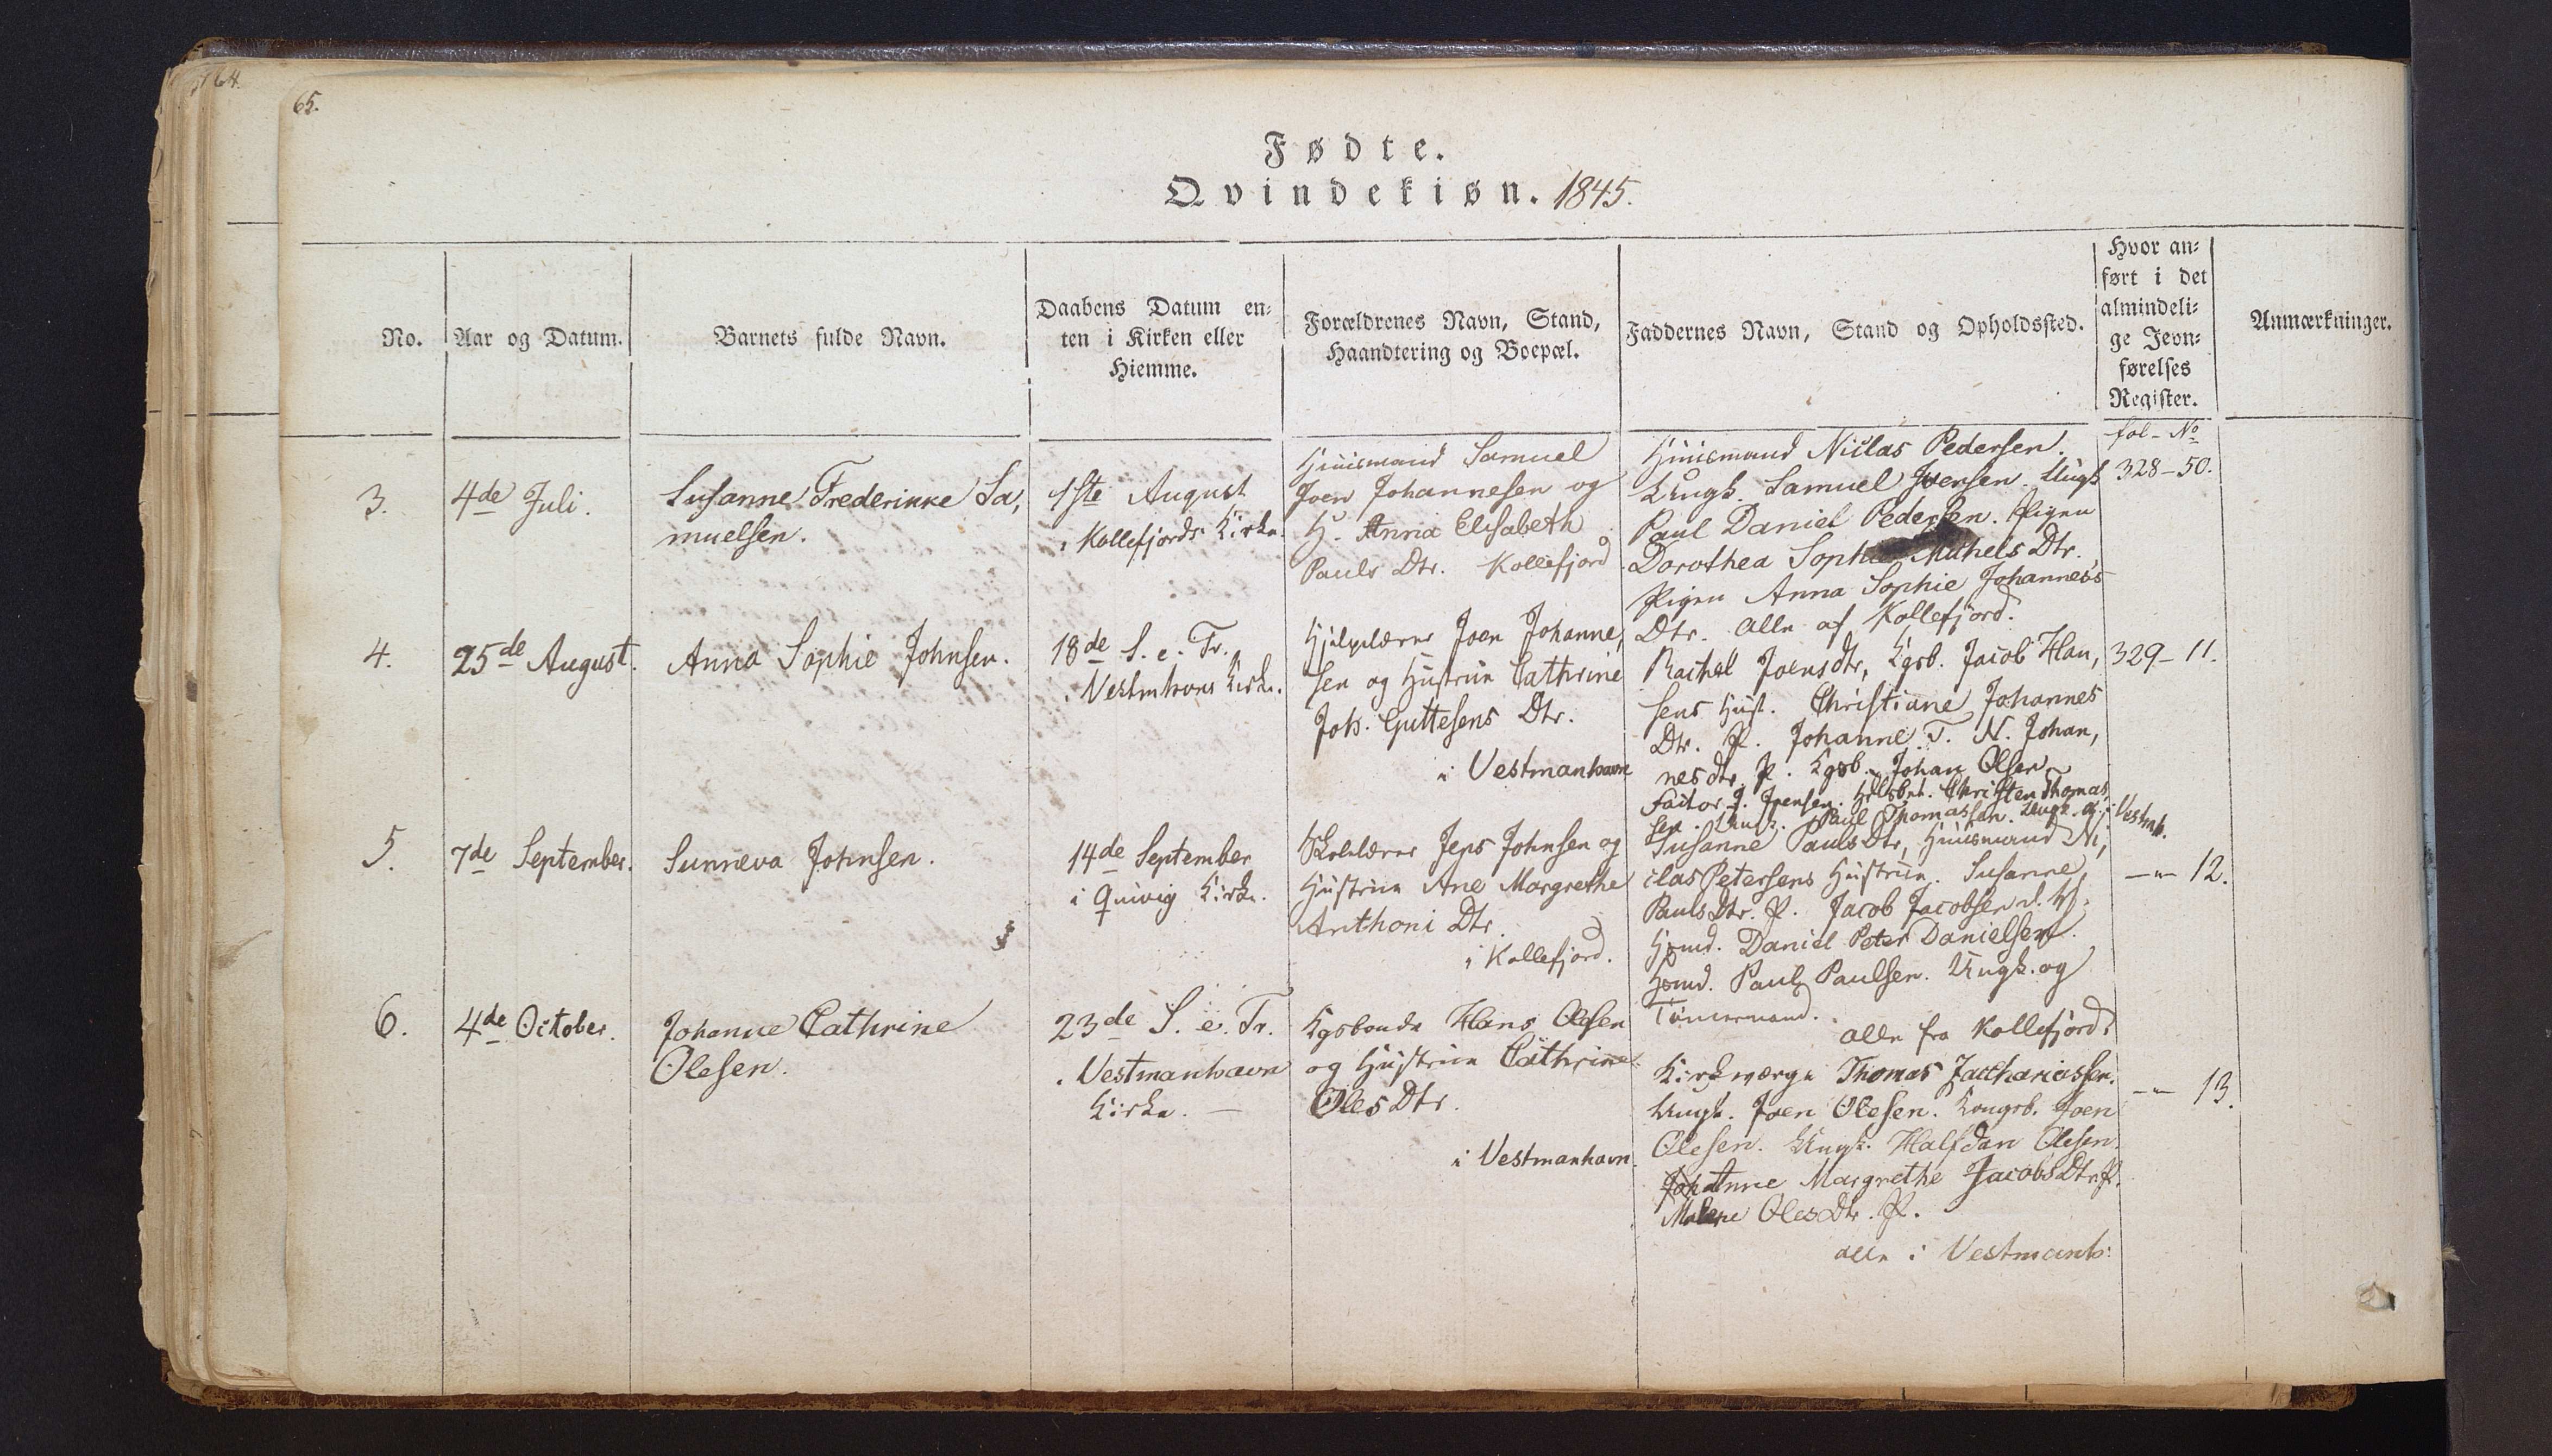 64.
65.
Fødte.
Qvindekiøn. 1845.
No.
Aar og Datum.
Barnets fulde Navn.
Daabens Datum en-
ten i Kirken eller
Hiemme.
Forældrenes Navn, Stand,
Haandtering og Boepæl.
Faddernes Navn, Stand og Opholdssted.
Hvor an-
ført i det
almindeli-
ge Jevn-
førelses
Register.
Anmærkninger.
3.
4de Juli.
Susanne Frederikke Sa,
muelsen.
1ste August
i Kollefjords Kirke.
Huusmand Samuel
Joen Johannesen og
H. Anna Elisabeth
Pauls Dtr. Kollefjord
Huusmand Niclas Pedersen.
Ungk. Samuel Joensen. Ungk
Paul Daniel Pedersen. Pigen
Dorothea Sophie Michels Dtr.
Pigen Anna Sophie Johannes's
Dtr. alle af Kollefjord.
fol - No
328 - 50.
4.
25de August.
Anna Sophie Johnsen.
18de S. e. Tr.
i Vestmhavns Kirke.
Hjelpelærer Joen Johanne,
sen og Hustrue Cathrine
Joh. Guttesens Dtr.
i Vestmanhavn
Rachel Joensdtr, Kgsb. Jacob Han,
sens Hust. Christiane Johannes
Dtr. P. Johanne T. N. Johan,
nesdtr P. Kgsb. Johan Olsen
Factor J. Joensen. Christen Thomas,
sen. Ungk. Paul Thomassen. Ungk. a. i Vestmh.
329 - 11.
5.
7de September.
Sunneva Johnsen.
14de September
i Quivig Kirke.
Skolelærer Jens Johnsen og
Hustrue Ane Margrethe
Anthoni Dtr.
i Kollefjord.
Susanne Pauls Dtr, Huusmand Ni,
clas Petersens Hustrue. Susanne
Pauls Dtr. P. Jacob Jacobsen
Hsmd. Daniel Peter Danielsen.
Hsmd. Paul Paulsen. Ungk. og
Tømermand.
alle fra Kollefjord.
— " — 12.
6.
4de October.
Johanne Cathrine
Olesen.
23de S. e. Tr.
i Vestmanhavn
Kirke. —
Kgsbonde Hans Olesen
og Hustrue Cathrine
Oles Dtr.
i Vestmanhavn.
Kirkeværge Thomas Zacchariassen.
Ungk. Joen Olesen. Kongsb. Joen
Olesen. Ungk. Halfdan Olesen.
Anne Margrethe Jacobs Dtr P.
Malene Oles Dtr. P.
alle i Vestmanh:
— " 13.